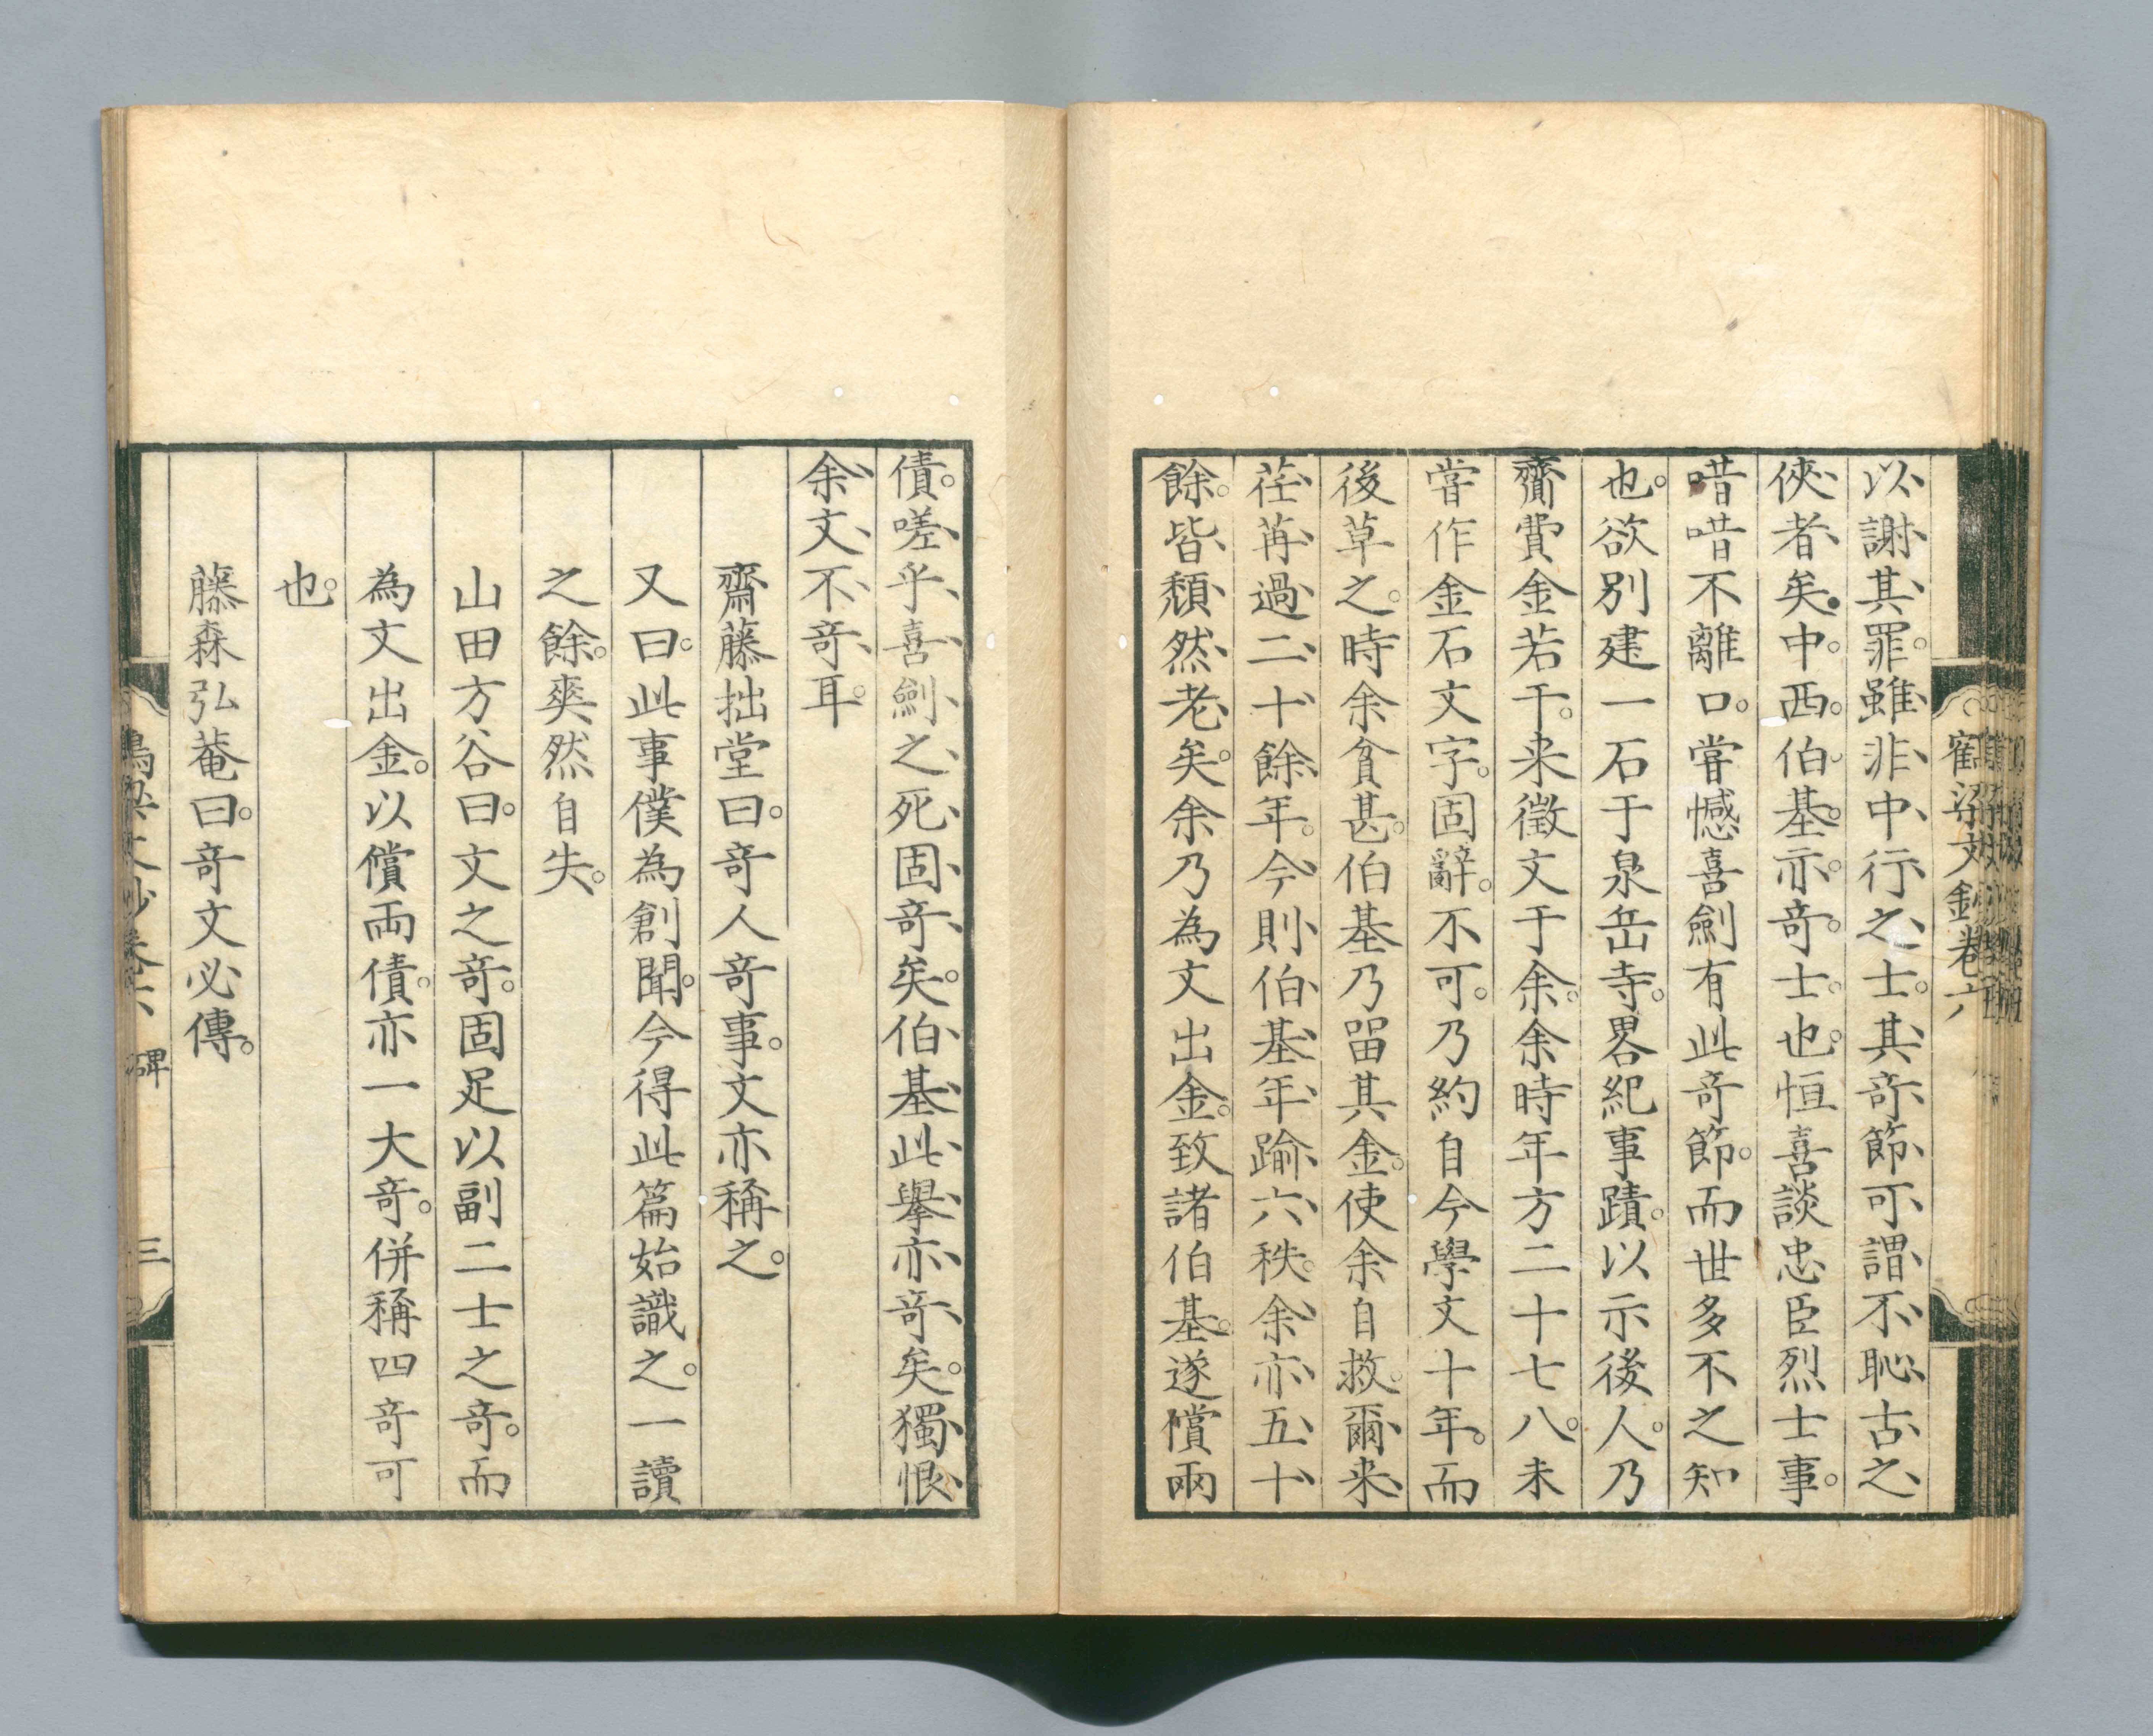 以謝其罪。雖非中行之士。其奇節可謂不恥古之
俠者矣。中西伯基亦奇士也。恒喜談忠臣烈士事。
唶唶不離口。嘗憾喜劍有此奇節。而世多不之知
也。欲別建一石于泉岳寺。畧紀事蹟。以示後人。乃
齎費金若干。来徵文于余。余時年方二十七八。未
嘗作金石文字。固辭。不可。乃約自今學文十年。而
後草之。時余貧甚。伯基乃留其金。使余自救。爾来
荏苒過二十餘年。今則伯基年踰六秩。余亦五十
餘。皆頹然老矣。余乃為文出金。致諸伯基。遂償兩
鶴梁文鈔卷六
債。嗟乎喜劍之死固奇矣。伯基此擧亦奇矣。獨恨
余文不奇耳
齋藤拙堂曰。奇人奇事。文亦稱之。
又曰。此事僕為創聞。今得此篇始識之。一讀
之餘。爽然自失。
山田方谷曰。文之奇。固足以副二士之奇。而
為文出金。以償兩債。亦一大奇。併稱四奇可
也。
藤森弘菴曰。奇文必傳。
鶴梁文鈔卷六 碑 三